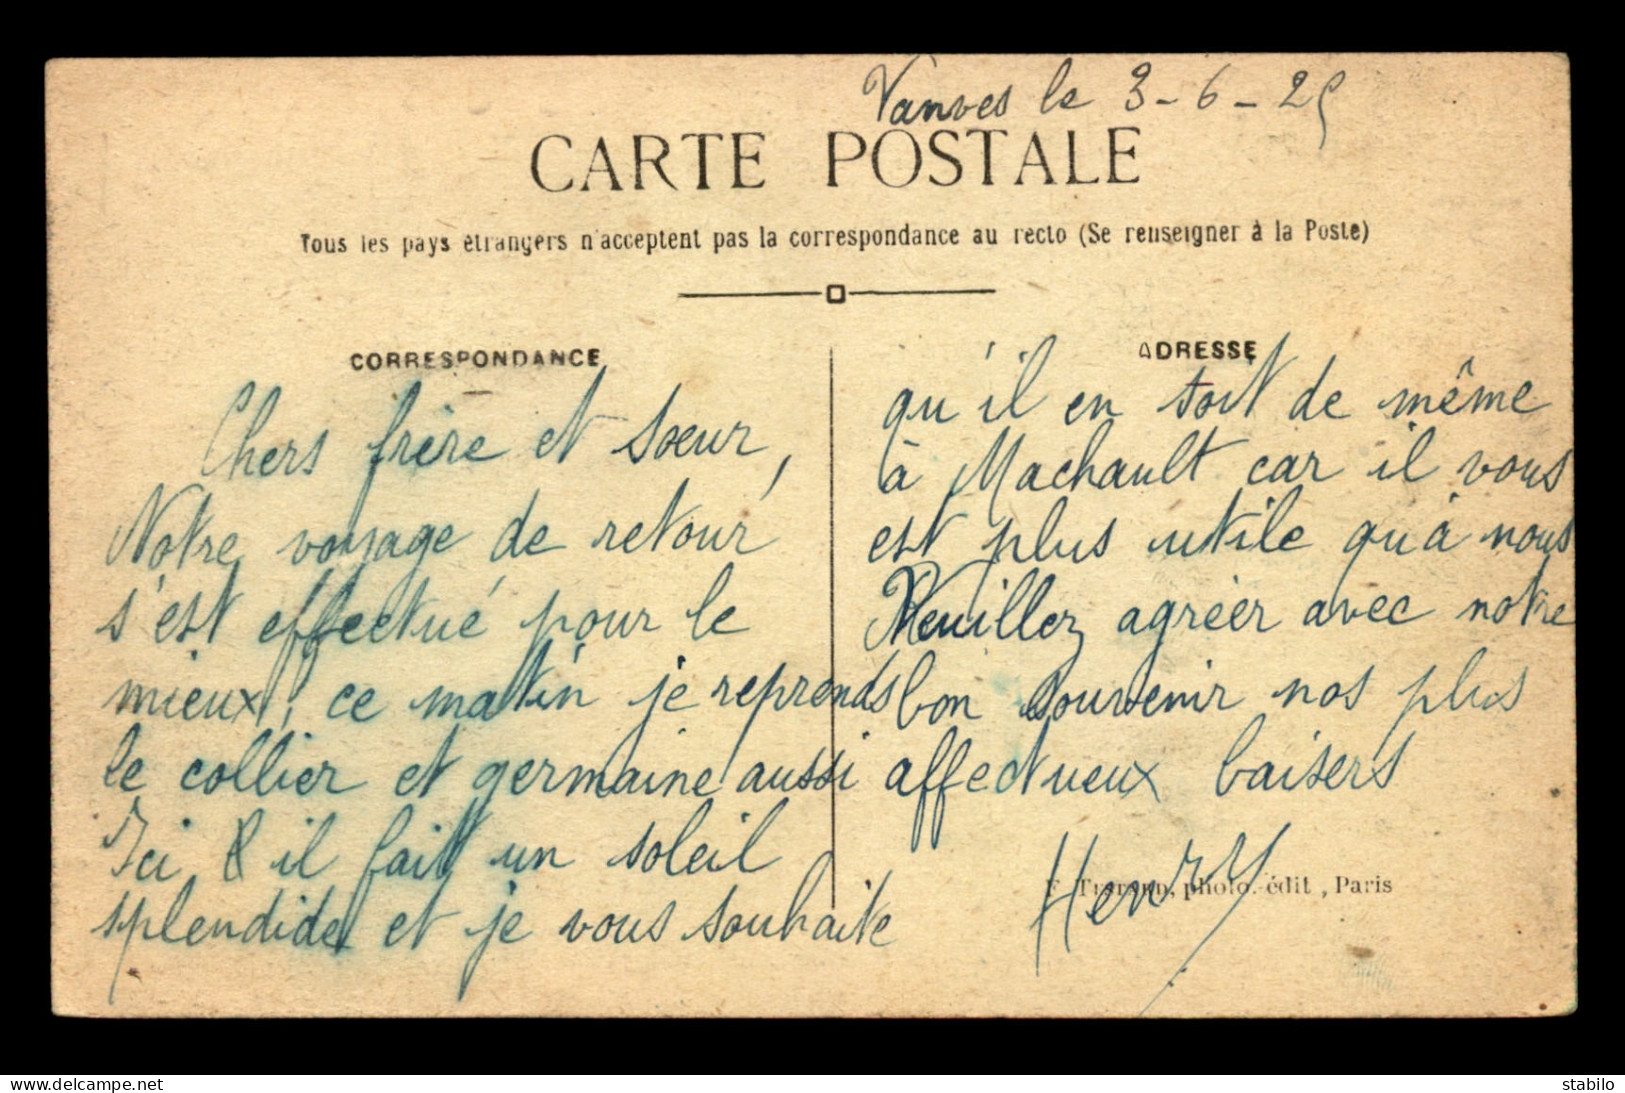 Vanves le 3-6-25
CARTE POSTALE
Tous les pays étrangers n'acceptent pas la correspondance au recto (Se renseigner à la Poste)
CORRESPONDANCE
Chers frère et soeur,
Notre voyage de retour
s'est effectué pour le
mieux, ce matin je reprends
le collier et germaine aussi
Ici il fait un soleil
splendide et je vous souhaite
ADRESSE
qu'il en soit de même
à Machault car il vous
est plus utile qu'à nous
Veuillez agréer avec notre
bon souvenir nos plus
affectueux baisers
Henry
photo.-édit, Paris
www.delcampe.net
stabilo